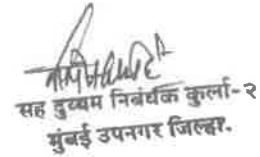 सह दुय्यम निबंधक कुर्ला-२
मुंबई उपनगर जिल्हा.